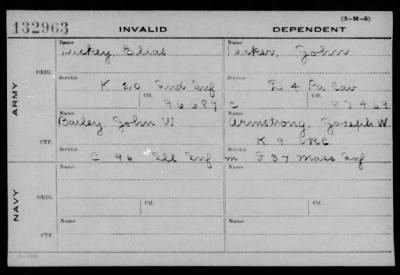 (3-H-5)
132963 INVALID DEPENDENT
Name Name
Dickey, Elias Decker, John
ORIG. Service Service
K 20 Ind Inf L 4 Pa Cav
Ctf. Ctf.
96687 c 87469
ARMY
Name Name
Bailey, John W. Armstrong, Joseph W.
K 9 VRC
CTF. Service Service
C 96 Ill Inf m F 37 Mass Inf
Name Name
ORIG. Service Service
Ctf. Ctf.
NAVY
Name Name
CTF. Service Service